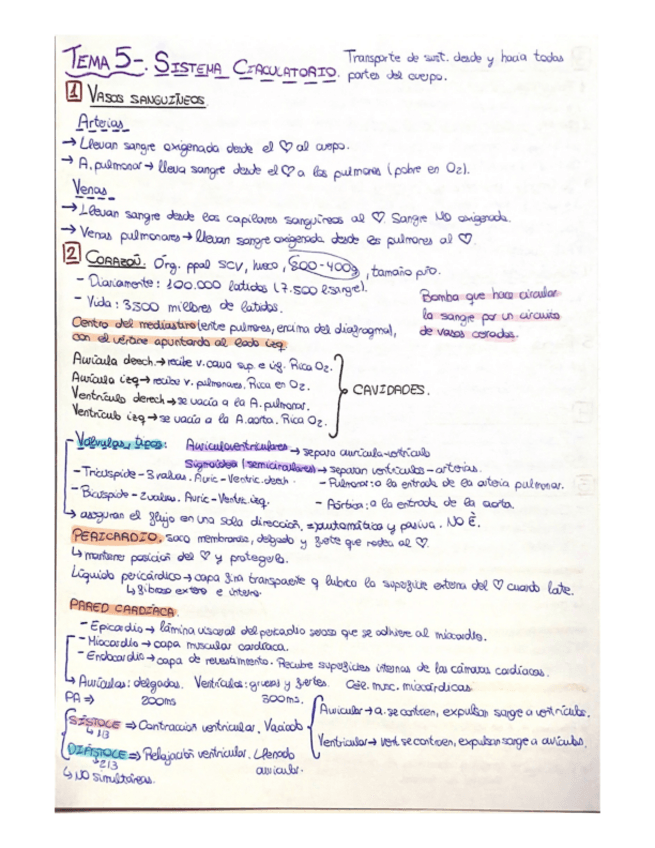 TEMA 5-. SISTEMA CIRCULATORIO. Transporte de sust. desde y hacia todas
partes del cuerpo.
1 VASOS SANGUÍNEOS
Arterias
→ Llevan sangre oxigenada desde el ♡ al cuerpo.
→ A. pulmonar → lleva sangre desde el ♡ a los pulmones (pobre en O2).
Venas
→ Llevan sangre desde los capilares sanguíneos al ♡. Sangre NO oxigenada.
→ Venas pulmonares → llevan sangre oxigenada desde los pulmones al ♡.
2 CORAZÓN. Órg. ppal SCV, hueco, 300-400g, tamaño puño.
- Diariamente: 100.000 latidos (7.500 l sangre).
- Vida: 3.500 millones de latidos.
Bomba que hace circular
la sangre por un circuito
de vasos cerrados.
Centro del mediastino (entre pulmones, encima del diafragma),
con el vértice apuntando al lado izq
Aurícula derech. → recibe v. cava sup. e inf. Rica O2.
Aurícula izq → recibe v. pulmonares. Rica en O2.
Ventrículo derech → se vacía a la A. pulmonar.
Ventrículo izq → se vacía a la A. aorta. Rica O2.
CAVIDADES.
Válvulas, tipos: Auriculoventriculares → separa aurícula-ventrículo
Sigmoidea (semicirculares) → separan ventrículos - arterias.
- Tricúspide - 3 valvas. Auric - Ventric. derech. - Pulmonar: a la entrada de la arteria pulmonar.
- Bicúspide - 2 valvas. Auric - Ventric. izq. - Aórtica: a la entrada de la aorta.
→ aseguran el flujo en una sola dirección, automática y pasiva. NO E.
PERICARDIO. saco membranoso, delgado y fuerte que rodea al ♡.
↳ mantiene posición del ♡ y protegerlo.
Líquido pericárdico → capa fina transparente q lubrica la superficie externa del ♡ cuando late.
↳ fibroso externo e interno.
PARED CARDÍACA.
- Epicardio → lámina visceral del pericardio seroso que se adhiere al miocardio.
- Miocardio → capa muscular cardíaca.
- Endocardio → capa de revestimiento. Recubre superficies internas de las cámaras cardíacas.
↳ Aurículas: delgadas. Ventrículos: gruesos y fuertes. musc. miocárdicas
PA ⇒ 200ms 300ms.
SÍSTOLE ⇒ Contracción ventricular. Vaciado
↳ 1/3
DIÁSTOLE ⇒ Relajación ventricular. Llenado
↳ 2/3 auricular.
↳ NO simultáneas.
Auricular → a. se contraen, expulsan sangre a ventrículos.
Ventricular → vent. se contraen, expulsan sangre a